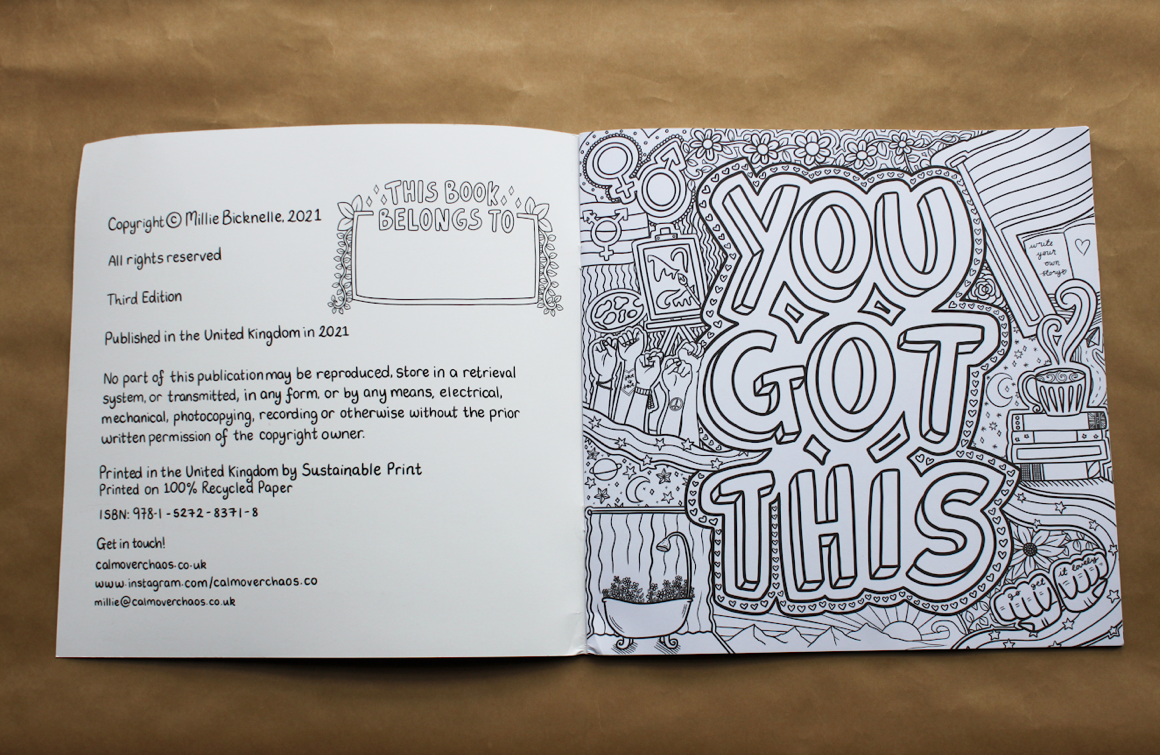 Copyright © Millie Bicknelle, 2021
All rights reserved
Third Edition
Published in the United Kingdom in 2021
No part of this publication may be reproduced, store in a retrieval
system, or transmitted, in any form, or by any means, electrical,
mechanical, photocopying, recording or otherwise without the prior
written permission of the copyright owner.
Printed in the United Kingdom by Sustainable Print
Printed on 100% Recycled Paper
ISBN: 978-1-5272-8371-8
Get in touch!
calmoverchaos.co.uk
www.instagram.com/calmoverchaos.co
millie@calmoverchaos.co.uk
THIS BOOK
BELONGS TO
YOU
GOT
THIS
write
your
own
story
go get
it lovely